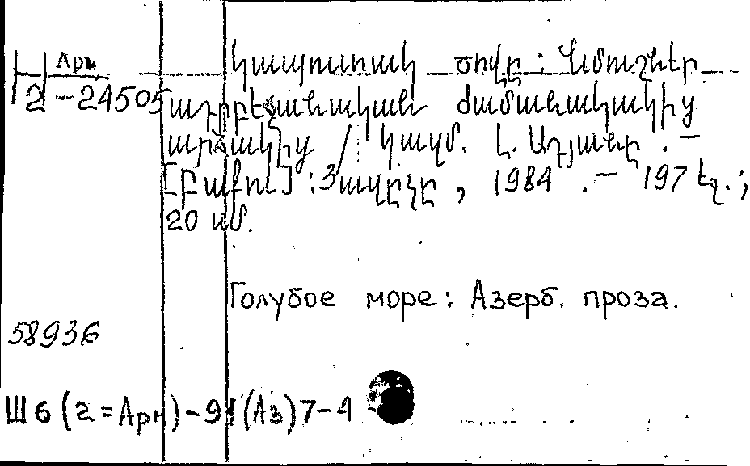 Арм
2-24505
Կապուտակ ծովը : Նմուշներ
ադրբեջանական ժամանակակից
արձակից / Կազմ. Լ. Ադյանը . —
[Բաքու] : Յազըչը , 1984 . — 197 էջ. ;
20 սմ.
Голубое море : Азерб. проза.
58936
Ш6(2=Арм)-91(Аз)7-4